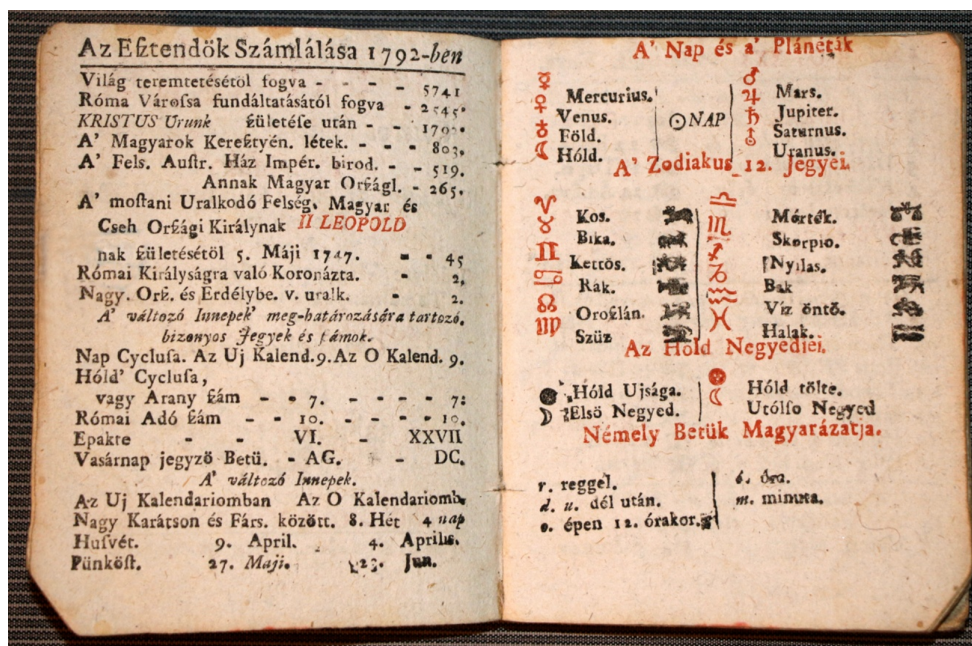 Az Eſztendök Számlálása 1792-ben
Világ teremtetésétöl fogva - - - - 5741
Róma Városſa fundáltatásától fogva - 2545.
KRISTUS Urunk ſzületéſe után - - 1792.
A' Magyarok Kereſztyén. létek. - - - 803.
A' Fels. Auſtr. Ház Impér. birod. - - 519.
Annak Magyar Orſzágl. - 265.
A' moſtani Uralkodó Felség. Magyar és
Cseh Orſzági Királynak II LEOPOLD
nak ſzületésétöl 5. Máji 1747. - - 45
Római Királyságra való Koronázta. - 2.
Nagy. Orſz. és Erdélybe. v. uralk. - 2.
A' változó Innepek' meg-határozására tartozó.
bizonyos Jegyek és ſzámok.
Nap Cycluſa. Az Uj Kalend. 9. Az O Kalend. 9.
Hóld' Cycluſa,
vagy Arany ſzám - - 7. - - - - 7:
Római Adó ſzám - - 10. - - - 10.
Epakte - - VI. - XXVII
Vasárnap jegyzö Betü. - AG. - DC.
A' változó Innepek.
Az Uj Kalendariomban Az O Kalendariomb.
Nagy Karátson és Fárs. között. 8. Hét 4 nap
Huſvét. 9. April. 4. Aprilis.
Pünköſt. 27. Maji. 23. Jun.
A' Nap és a' Plánéták
☿ Mercurius. ♂ Mars.
♀ Venus. ☉ NAP ♃ Jupiter.
♁ Föld. ♄ Saturnus.
☾ Hóld. Uranus.
A' Zodiakus 12. Jegyei.
♈ Kos. ♎ Mérték.
♉ Bika. ♏ Skorpio.
♊ Kettös. ♐ Nyilas.
♋ Rák. ♑ Bak
♌ Oroſzlán. ♒ Víz öntő.
♍ Szüz ♓ Halak.
Az Hóld Negyedjei.
Hóld Ujsága. Hóld tölte.
☽ Elsö Negyed. ☾ Utólſo Negyed
Némely Betük Magyarázatja.
r. reggel. ó. óra.
d. u. dél után. m. minuta.
e. épen 12. órakor.